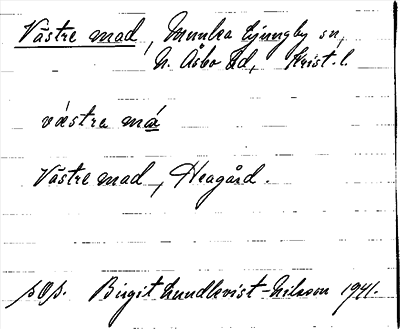 Västre mad, Munka Ljungby sn,
N. Åsbo hd, Krist. l.
västre má
Västre mad, Heagård.
pOp. Birgit Lundkvist-Nilsson 1941.